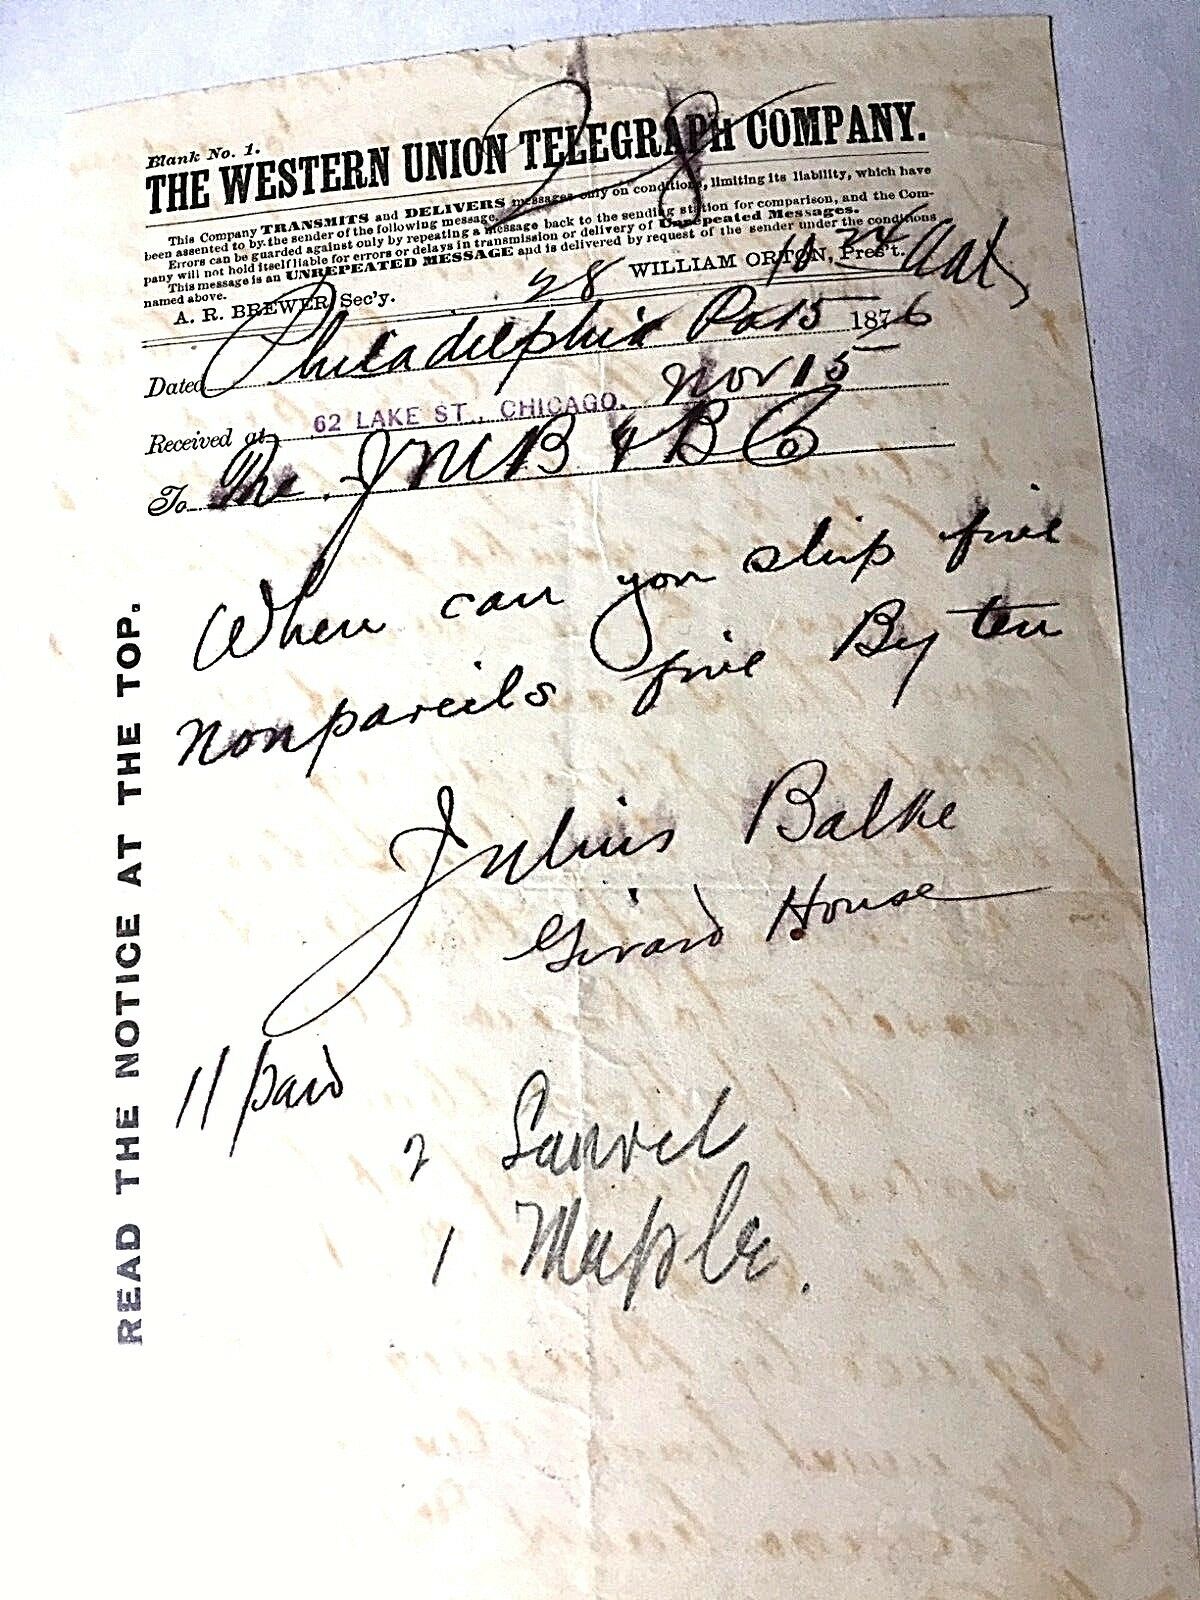 28
Blank No. 1.
THE WESTERN UNION TELEGRAPH COMPANY.
This Company TRANSMITS and DELIVERS messages only on conditions, limiting its liability, which have
been assented to by the sender of the following message.
Errors can be guarded against only by repeating a message back to the sending station for comparison, and the Com-
pany will not hold itself liable for errors or delays in transmission or delivery of Unrepeated Messages.
This message is an UNREPEATED MESSAGE and is delivered by request of the sender under the conditions
named above.
A. R. BREWER, Sec'y. 28 WILLIAM ORTON, Pres't.
Dated Philadelphia Pa 15 1876
Received at 62 LAKE ST., CHICAGO. Nov 15
To The J M B & B Co
When can you ship five
nonpareils five By ten
Julius Balke
Girard House
11 paid
2 Laurel
1 Maple.
READ THE NOTICE AT THE TOP.